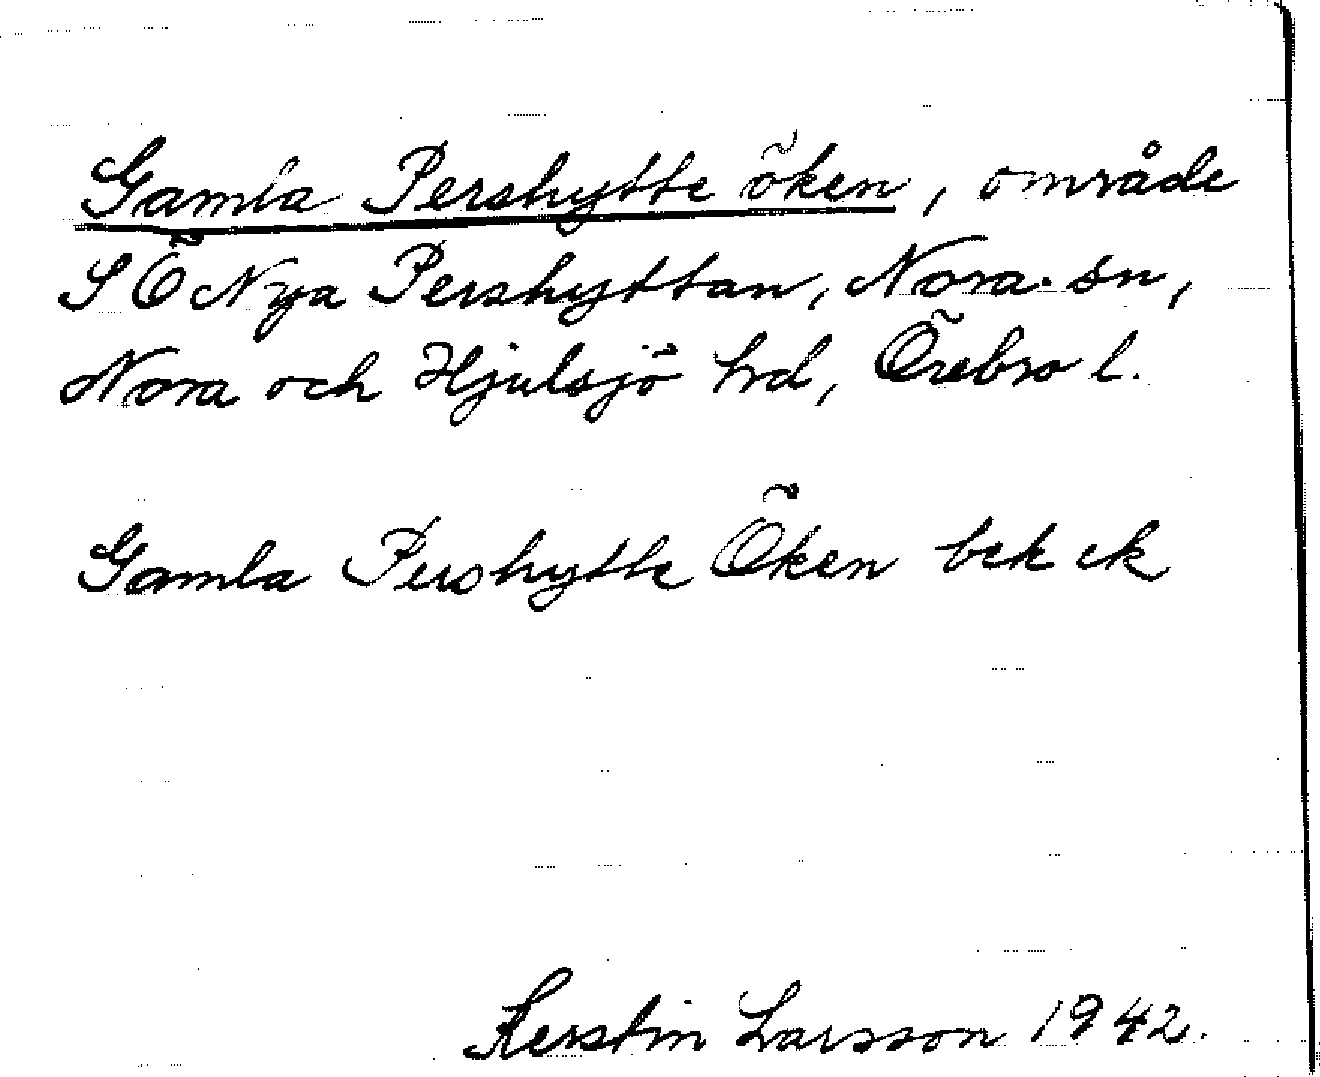 Gamla Pershytte öken, område
S Ö Nya Pershyttan, Nora sn,
Nora och Hjulsjö hrd, Örebro l.
Gamla Pershytte Öken bek ek
Kerstin Larsson 1942.